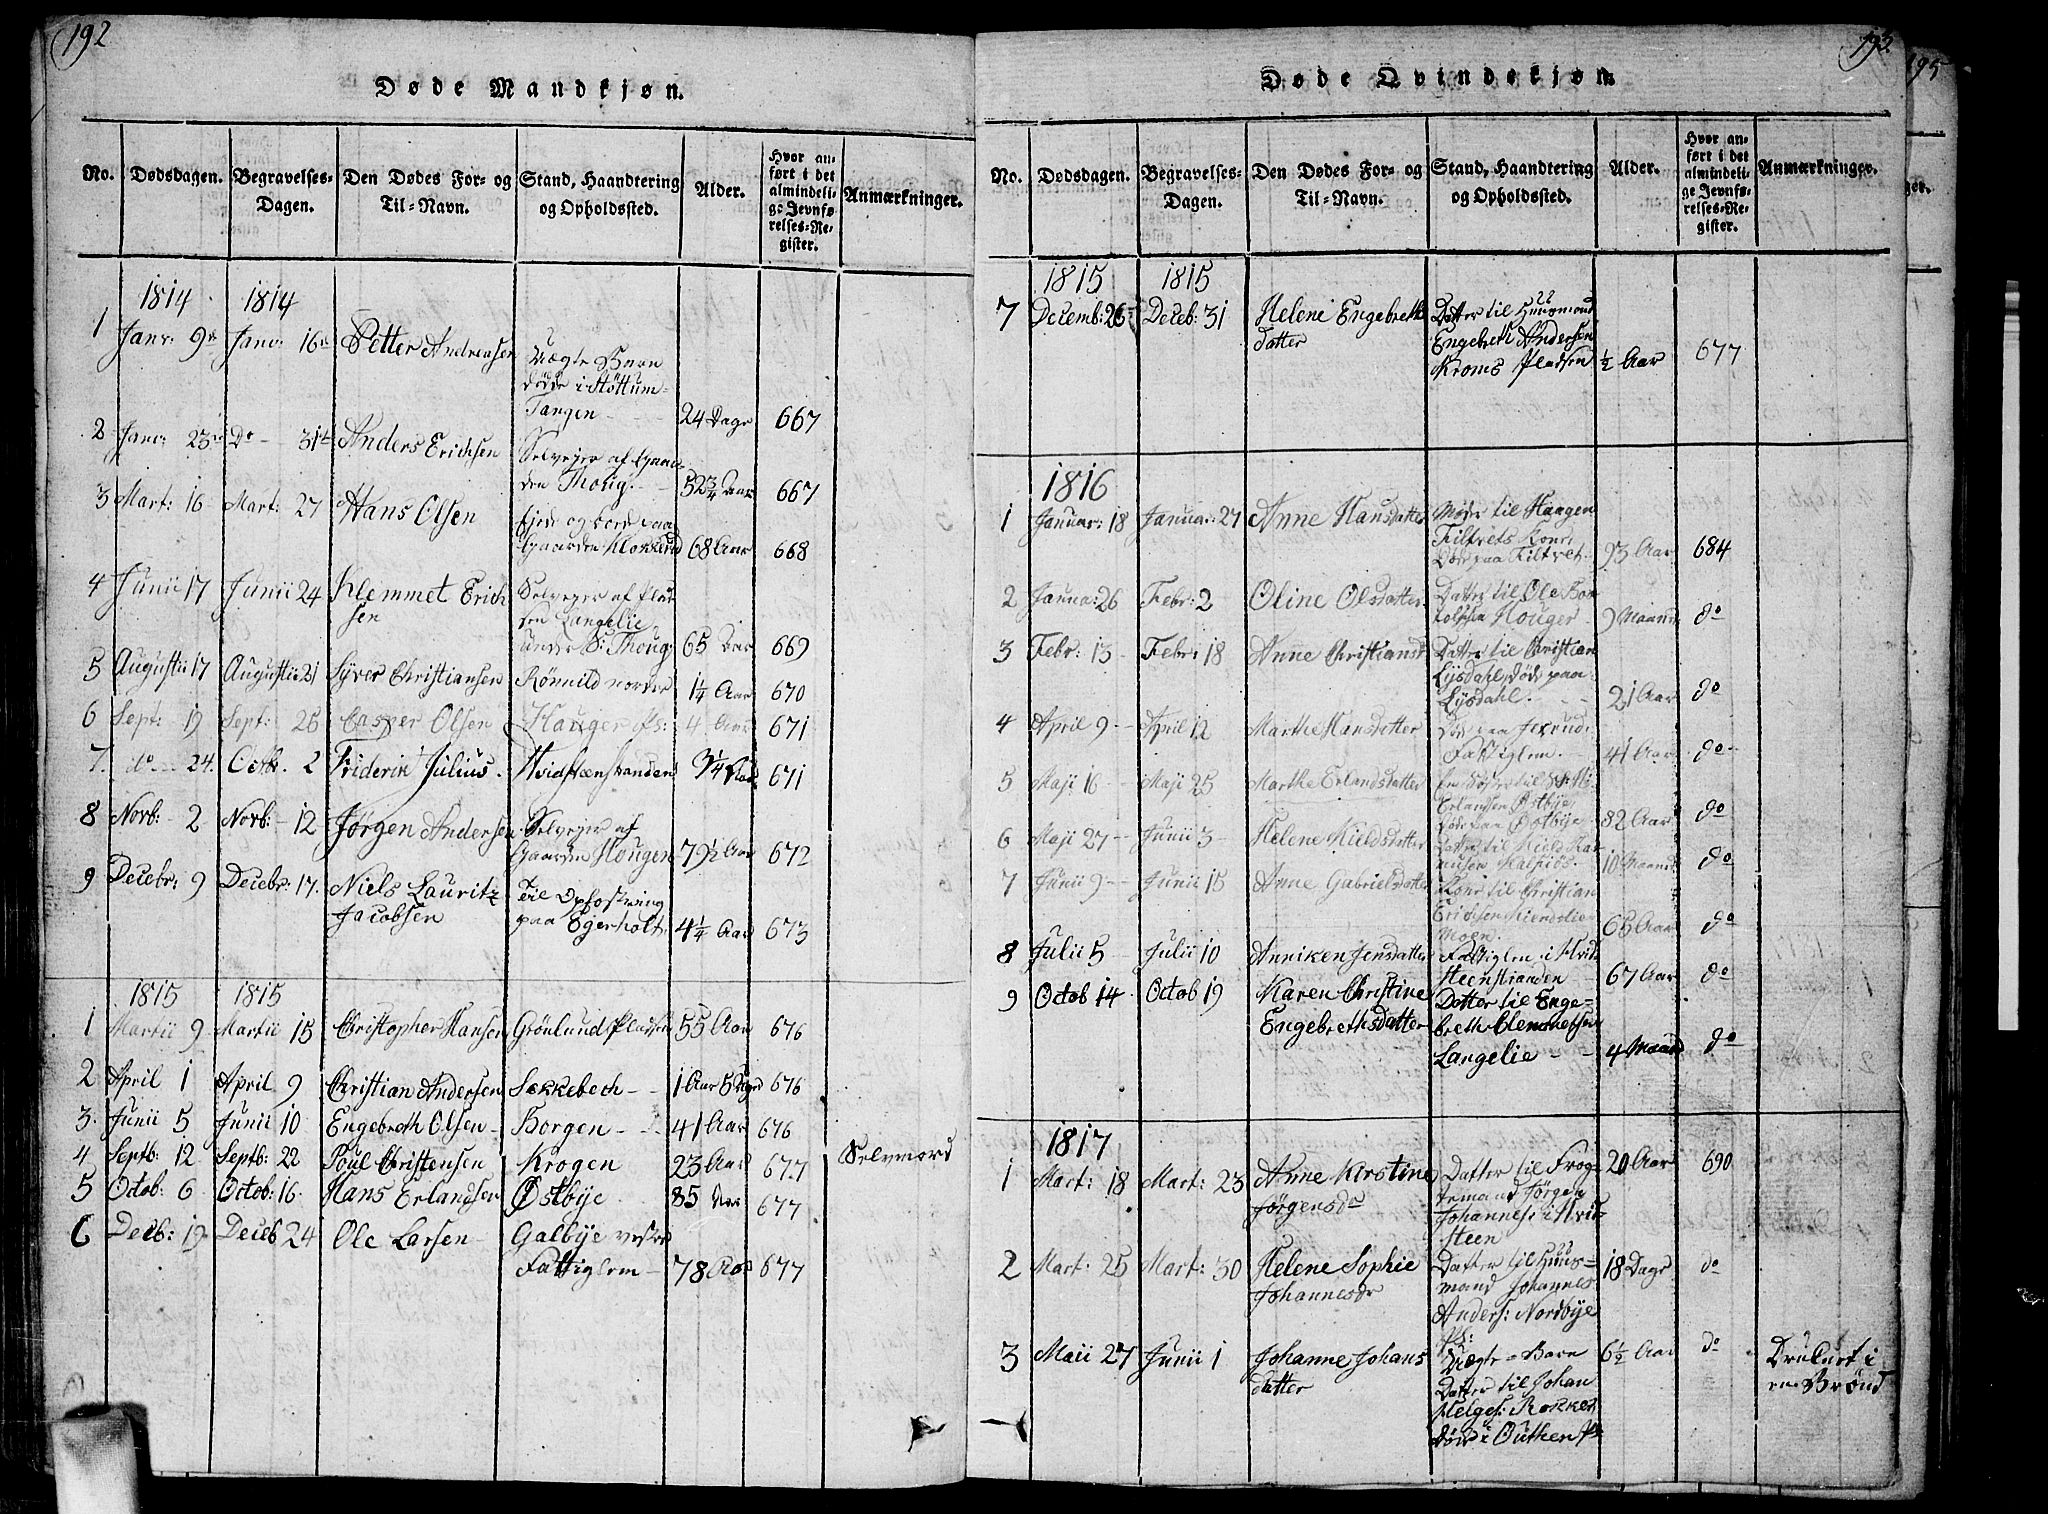 192
Døde Mandkjøn.
No. Dødsdagen. Begravelses-Dagen. Den Dødes For- og Til-Navn. Stand, Haandtering og Opholdssted. Alder. Hvor anført i det almindelige Jevnførelses-Register. Anmærkninger.
1814 1814
1 Janv: 9de Janv: 16de Petter Andreasen Uægte Barn
døde i Støttum-
Tangen 24 Dage 667
2 Janv: 23de Do 31te Anders Erichsen Selvejer af Gaar-
den Thoug. 52 3/4 Aar 667
3 Mart: 16 Mart: 27 Hans Olsen
Gaarden Klokkerud 68 Aar 668
4 Junii 17 Junii 24 Klemmet Erich Selvejer af Plad
sen sen Langelie
under S: Thoug 65 Aar 669
5 Augustii 17 Augustii 21 Syver Christiansen Rönnild nordre 1 1/4 Aar 670
6 Sept: 19 Sept: 25 Casper Olsen Hauger Ps: 4 Aar 671
7. do 24. Octb. 2 Friderik Julius. Hvidstenstranden 3 1/4 Aar 671
8 Novb: 2 Novb: 12 Jørgen Andersen Selvejer af
Gaarden Hougen 79 1/2 Aar 672
9 Decebr: 9 Decebr: 17. Niels Lauritz Til Opfostring
Jacobsen paa Egerholt. 4 1/4 Aar 673
1815 1815
1 Martii 9 Martii 15 Christopher Hansen Grönlund Pladsen 55 Aar 676
2 April 1 April 9 Christian Andersen Sekkebech 1 Aar 5 Dage 676
3. Junii 5 Junii 10 Engebreth Olsen Borgen 41 Aar 676
4 Septb: 12 Septb: 22 Poul Christensen Krogen 23 Aar 677 Selvmord
5 Octob: 6 Octob: 16 Hans Erlandsen Østbye 85 Aar 677
6 Deceb: 19 Deceb 24 Ole Larsen Galbye vestre
Fattiglem 78 Aar 677
193.
195
Døde Qvindekjøn.
No. Dødsdagen. Begravelses-Dagen. Den Dødes For- og Til-Navn. Stand, Haandtering og Opholdssted. Alder. Hvor anført i det almindelige Jevnførelses-Register. Anmærkninger.
1815 1815
7 Decemb: 26 Deceb: 31 Helene Engebreths Datter til Huusmand
datter Engebreth Andersen
Kroms Pladsen 1/2 Aar 677
1816
1 Januar: 18 Januar: 21 Anne Hansdatter Moder til Haagen
Filtvets Kone,
Døde paa Filtvet. 93 Aar 684
2 Janua: 26 Febr: 2 Oline Olsdatter Datter til Ole
Houger 9 Maaned do
3 Febr: 13 Febr: 18 Anne Christiansd Datter til Christian
Lysdahl, Døde paa
Lysdahl. 21 Aar do
4 April 9 April 12 Marthe Hansdatter Døde paa
Fattiglem. 41 Aar do
5 Maji 16 Maji 25 Marthe Erlandsdatter
Erlandsen Østbye,
Døde paa Østbye 82 Aar do
6 Maji 27 Junii 3 Helene Kieldsdatter Datter til Kield
10 Maaned do
7 Junii 9 Junii 15 Anne Gabrielsdatter Kone til Christian
Erichsen
Moen. 65 Aar do
8 Julii 5 Julii 10 Anniken Jensdatter Fattiglem i Hvid
steenstranden 67 Aar do
9 Octob 14 Octob 19 Karen Christine Datter til Enge-
Engebrethsdatter breth Clemmetsen
Langelie 4 Maaned do
1817
1 Mart: 18 Mart: 23 Anne Kirstine Datter til 20 Aar 690
Jørgensdr Jørgen
Johannes: i Hvid
steen
2 Mart: 25 Mart: 30 Helene Sophie Datter til Huus- 18 Dage do
Johannesdr mand Johannes
Anders: Nordbye
Ps:
3 Maii 27 Junii 1 Johanne Johans Uægte Barn 6 1/2 Aar do Druknet i
datter Datter til Johan en Brönd
Helges: Røkker
døde i Outhen Ps